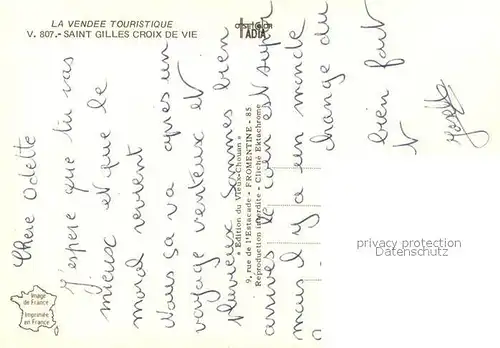 LA VENDEE TOURISTIQUE
V. 807.- SAINT GILLES CROIX DE VIE
ADIA
Chère Odette
J'espère que tu vas
mieux et que le
moral revient
Nous ça va après un
voyage venteux et
pluvieux sommes bien
arrivés le coin est super
mais il y a un monde
change du
bien fait
"Edition du Vieux-Chouan"
9, rue de l'Estacade - FROMENTINE - 85
Reproduction interdite - Cliché Ektachrome
privacy protection
Datenschutz
Image
de France
Imprimée
en France